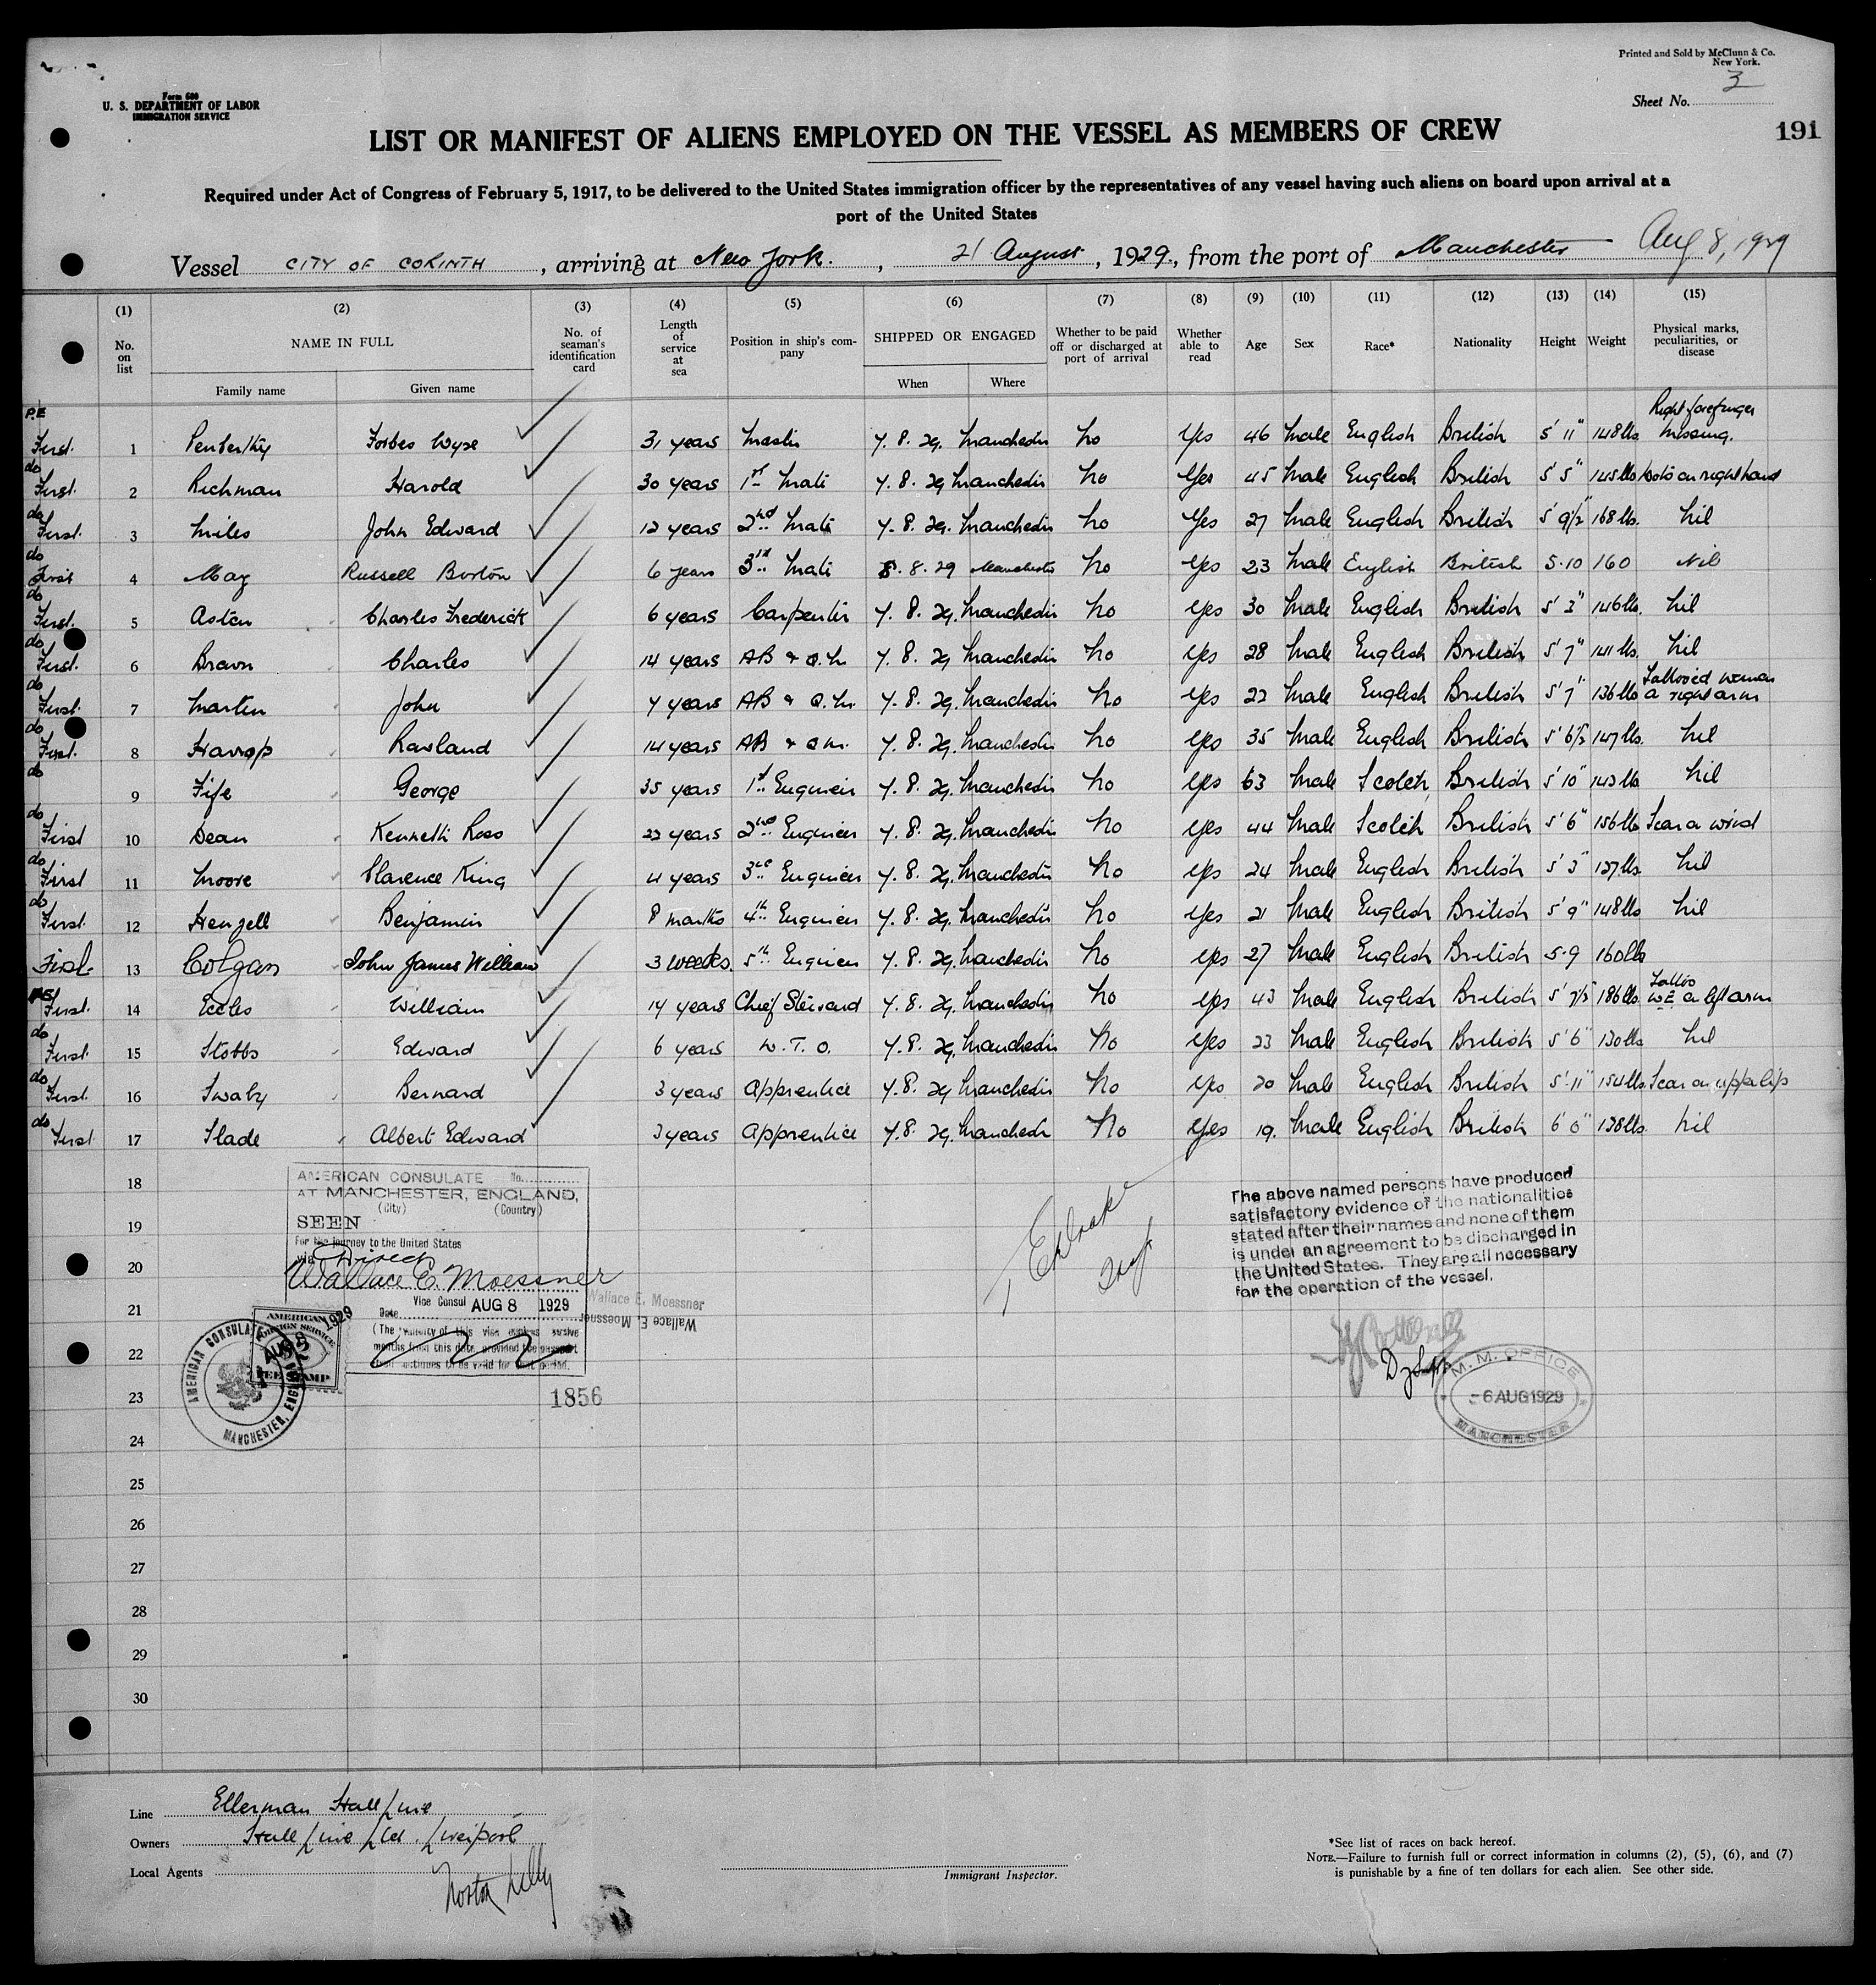 Printed and Sold by McClunn & Co.
New York.
Form 680
U. S. DEPARTMENT OF LABOR
IMMIGRATION SERVICE
Sheet No. 3
191
LIST OR MANIFEST OF ALIENS EMPLOYED ON THE VESSEL AS MEMBERS OF CREW
Required under Act of Congress of February 5, 1917, to be delivered to the United States immigration officer by the representatives of any vessel having such aliens on board upon arrival at a
port of the United States
Vessel CITY OF CORINTH, arriving at New York., 21 August, 1929., from the port of Manchester Aug 8, 1929
(1) (2) (3) (4) (5) (6) (7) (8) (9) (10) (11) (12) (13) (14) (15)
No. on list
NAME IN FULL
Family name Given name
No. of seaman's identification card
Length of service at sea
Position in ship's company
SHIPPED OR ENGAGED
When Where
Whether to be paid off or discharged at port of arrival
Whether able to read
Age Sex Race* Nationality Height Weight
Physical marks, peculiarities, or disease
P.E First. 1 Penberthy Forbes Wyse 31 years Master 7.8.29. Manchester No Yes 46 Male English British 5' 11" 148 lbs. Right forefinger missing.
do First. 2 Richman Harold 30 years 1st Mate 7.8.29 Manchester No Yes 45 Male English British 5' 5" 145 lbs on right hand
do First. 3 Miles John Edward 12 years 2nd Mate 7.8.29. Manchester No Yes 27 Male English British 5' 9½" 168 lbs. Nil
do First 4 May Russell Burton 6 years 3rd Mate 8.8.29 Manchester No Yes 23 Male English British 5.10 160 Nil
do First. 5 Aston Charles Frederick 6 years Carpenter 7.8.29. Manchester No Yes 30 Male English British 5' 3" 146 lbs. Nil
do First. 6 Brown Charles 14 years AB & Q.M. 7.8.29 Manchester No Yes 28 Male English British 5' 7" 141 lbs. Nil
do First. 7 Martin John 7 years AB & Q.M. 7.8.29. Manchester No Yes 22 Male English British 5' 7" 136 lbs Tattooed woman on right arm
do First. 8 Harrop Rowland 14 years AB & Q.M. 7.8.29. Manchester No Yes 35 Male English British 5' 6½ 147 lbs. Nil
do 9 Fife George 35 years 1st Engineer 7.8.29. Manchester No Yes 63 Male Scotch British 5' 10" 143 lbs Nil
do First 10 Dean Kenneth Ross 22 years 2nd Engineer 7.8.29. Manchester No Yes 44 Male Scotch British 5' 6" 156 lbs Scar on wrist
do First 11 Moore Clarence King 4 years 3rd Engineer 7.8.29. Manchester No Yes 24 Male English British 5' 3" 127 lbs. Nil
do First. 12 Henzell Benjamin 8 months 4th Engineer 7.8.29. Manchester No Yes 21 Male English British 5' 9" 148 lbs Nil
First. 13 Colgan John James William 3 weeks. 5th Engineer 7.8.29. Manchester No Yes 27 Male English British 5.9 160 lbs
First. 14 Eccles William 14 years Chief Steward 7.8.29. Manchester No Yes 43 Male English British 5' 7½" 186 lbs. Tattoo W.E on left arm
do First. 15 Stobbs Edward 6 years W.T.O. 7.8.29. Manchester No Yes 23 Male English British 5' 6" 130 lbs Nil
do First. 16 Swaby Bernard 3 years Apprentice 7.8.29 Manchester No Yes 20 Male English British 5' 11" 154 lbs. Scar on upper lip
do First 17 Slade Albert Edward 3 years Apprentice 7.8.29. Manchester No Yes 19. Male English British 6' 0" 138 lbs. Nil
18
19
20
21
22
23
24
25
26
27
28
29
30
AMERICAN CONSULATE No.
AT MANCHESTER, ENGLAND,
(City) (Country)
SEEN
For the journey to the United States
via Direct
Wallace E. Moessner
Vice Consul
Date AUG 8 1929
(The validity of this visa expires twelve
months from this date, provided the passport
continues to be valid for that period.
Wallace E. Moessner
Wallace E. Moessner
AMERICAN FOREIGN SERVICE
AUG 8 1929
FEE STAMP
AMERICAN CONSULATE
MANCHESTER, ENGLAND
1856
The above named persons have produced
satisfactory evidence of the nationalities
stated after their names and none of them
is under an agreement to be discharged in
the United States. They are all necessary
for the operation of the vessel.
M. M. OFFICE
-6 AUG 1929
MANCHESTER
Line Ellerman Hall Line
Owners Hall Line Ltd. Liverpool
Local Agents Norton Lilly
Immigrant Inspector.
*See list of races on back hereof.
NOTE.—Failure to furnish full or correct information in columns (2), (5), (6), and (7)
is punishable by a fine of ten dollars for each alien. See other side.